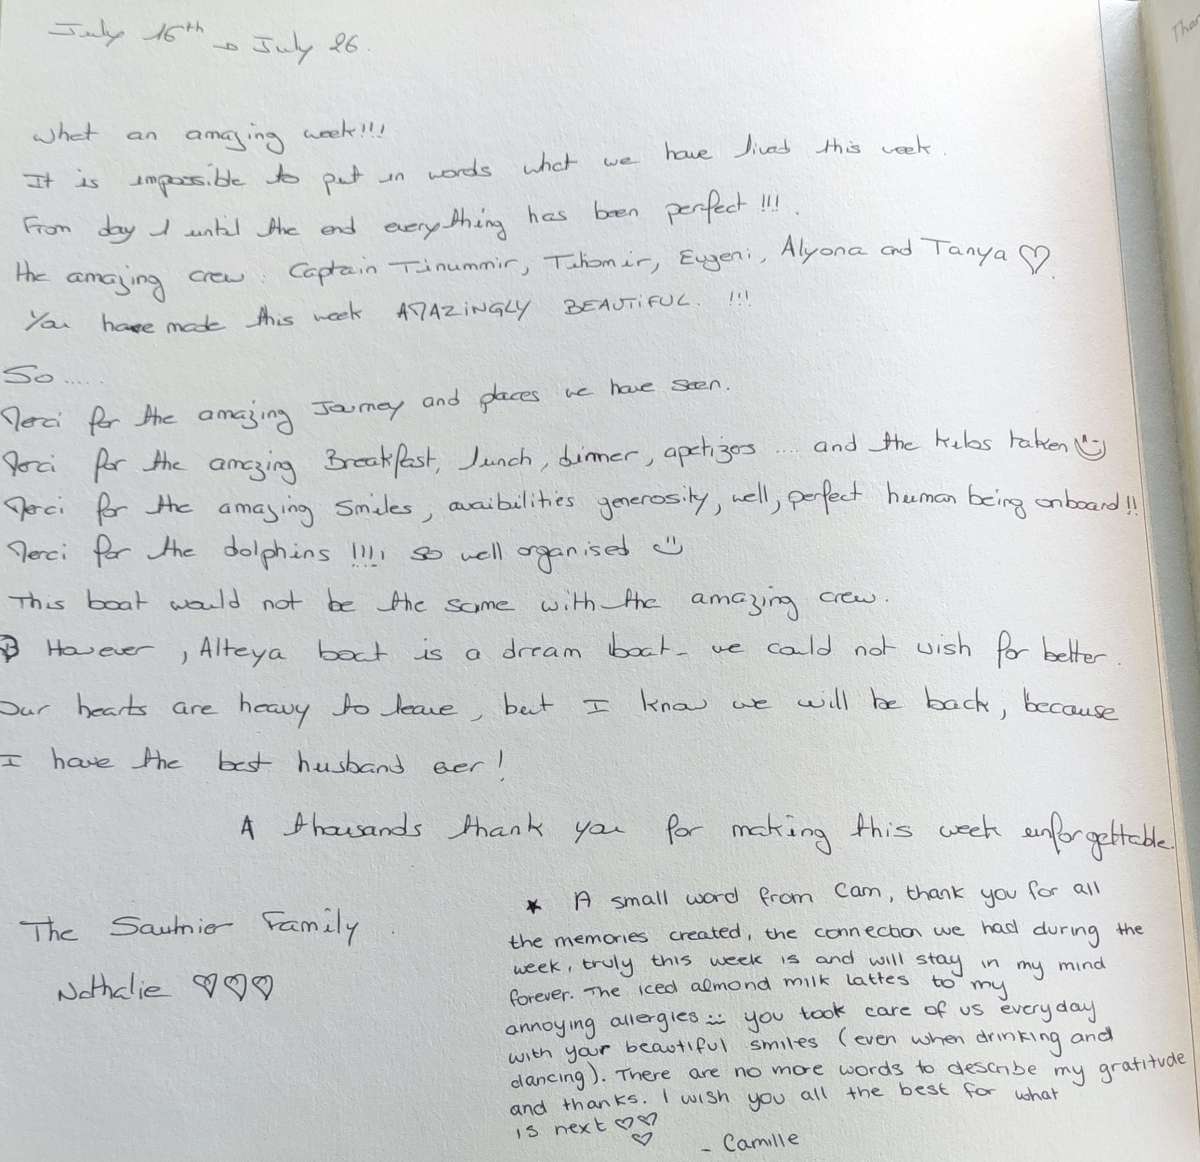 July 16th → July 26.
What an amazing week!!!
It is impossible to put in words what we have lived this week.
From day 1 until the end everything has been perfect !!!.
the amazing crew : Captain Tinummir, Tihomir, Eugeni, Alyona and Tanya ♡.
You have made this week AMAZiNGLY BEAUTiFUL. !!!
So .....
Merci for the amazing Journey and places we have seen.
Merci for the amazing Breakfast, lunch, dinner, apetizers .... and the kilos taken
Merci for the amazing Smiles, avaibilities generosity, well, perfect human being onboard!!
Merci for the dolphins !!!! so well organised
This boat would not be the same with the amazing crew.
However, Alteya boat is a dream boat - we could not wish for better.
Our hearts are heavy to leave, but I know we will be back, because
I have the best husband ever !
A thousands thank you for making this week unforgettable.
The Saulnier Family.
Nathalie ♡♡♡
★ A small word from Cam, thank you for all
the memories created, the connection we had during the
week, truly this week is and will stay in my mind
forever. The iced almond milk lattes to my
annoying allergies you took care of us everyday
with your beautiful smiles (even when drinking and
dancing). There are no more words to describe my gratitude
and thanks. I wish you all the best for what
is next ♡♡♡
- Camille